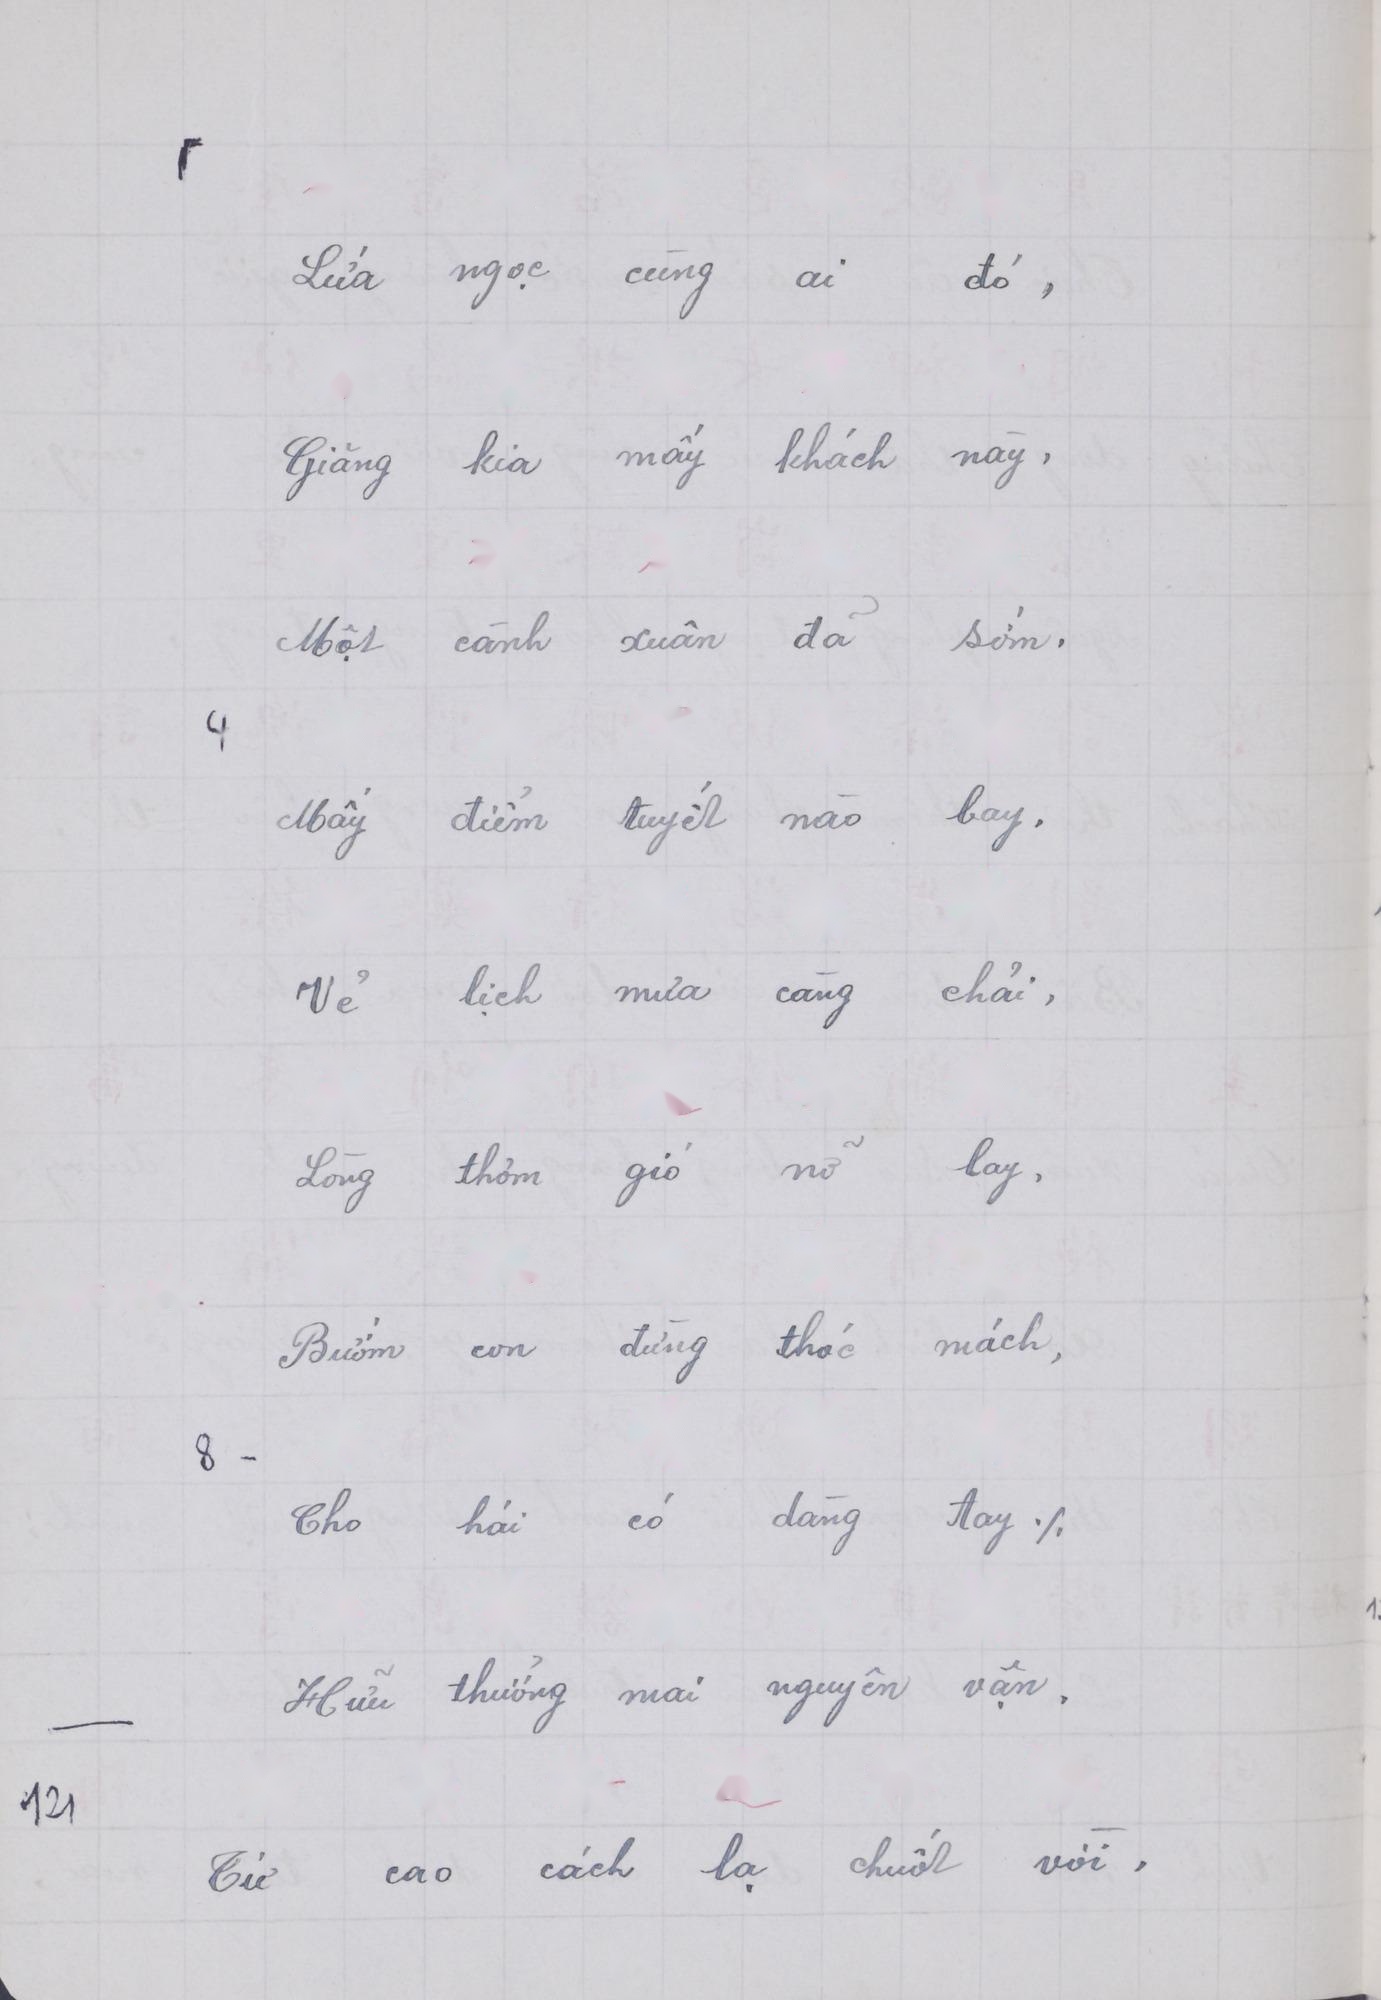 Lứa ngọc cùng ai đó,
Giăng kia mấy khách nảy,
Một cành xuân đã sớm.
4
Mấy điểm tuyết nào bay.
Vẻ lịch mưa càng chải,
Lòng thơm gió nỡ lay.
Bướm con đừng thóc mách,
8 -
Cho hái có dàng tay ./.
Hữu thưởng mai nguyên vận.
121
Từ cao cách lạ chuốt vời,